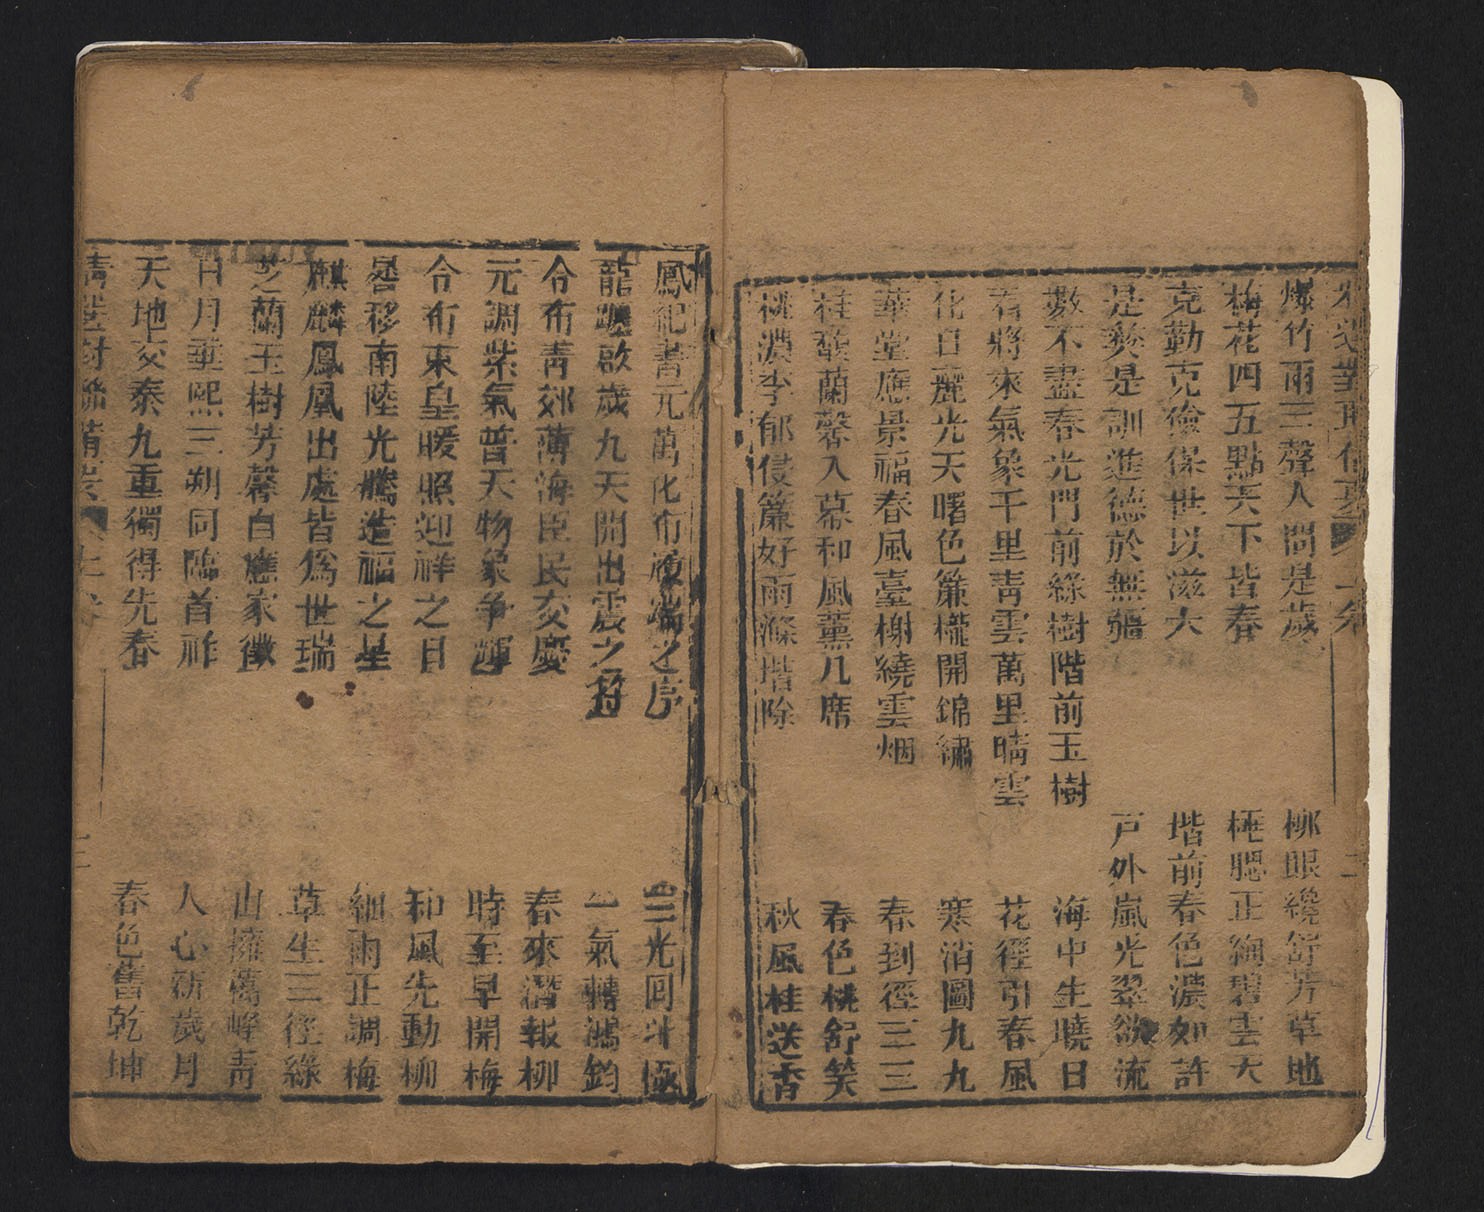 爆竹兩三聲人間是歲
梅花四五點天下皆春
克勤克儉保世以滋大
是彝是訓進德於無疆
數不盡春光門前綠樹階前玉樹
看將來氣象千里青雲萬里晴雲
化日麗光天曙色簾櫳開錦繡
華堂應景福春風臺榭繞雲烟
桂馥蘭馨入幕和風薰几席
桃濃李郁侵簾好雨滌堦除
柳眼纔舒芳草地
梅腮正綯碧雲天
堦前春色濃如許
戸外嵐光翠欲流
海中生曉日
花徑引春風
寒消圖九九
春到徑三三
春色桃舒笑
秋風桂送香
鳳紀書元萬化布 端之序
龍躔啟歲九天開出震之符
令布青郊薄海臣民交慶
元調紫氣普天物象爭輝
令布東皇暖照迎祥之日
晷移南陸光騰造福之星
麒麟鳳凰出處皆爲世瑞
芝蘭玉樹芳馨自應家徵
日月重熙三朔同臨首祚
天地交泰九重獨得先春
三光回斗極
一氣轉鴻鈞
春來潛報柳
時至早開梅
和風先動柳
細雨正調梅
草生三徑綠
山擁萬峰青
人心新歲月
春色舊乾坤